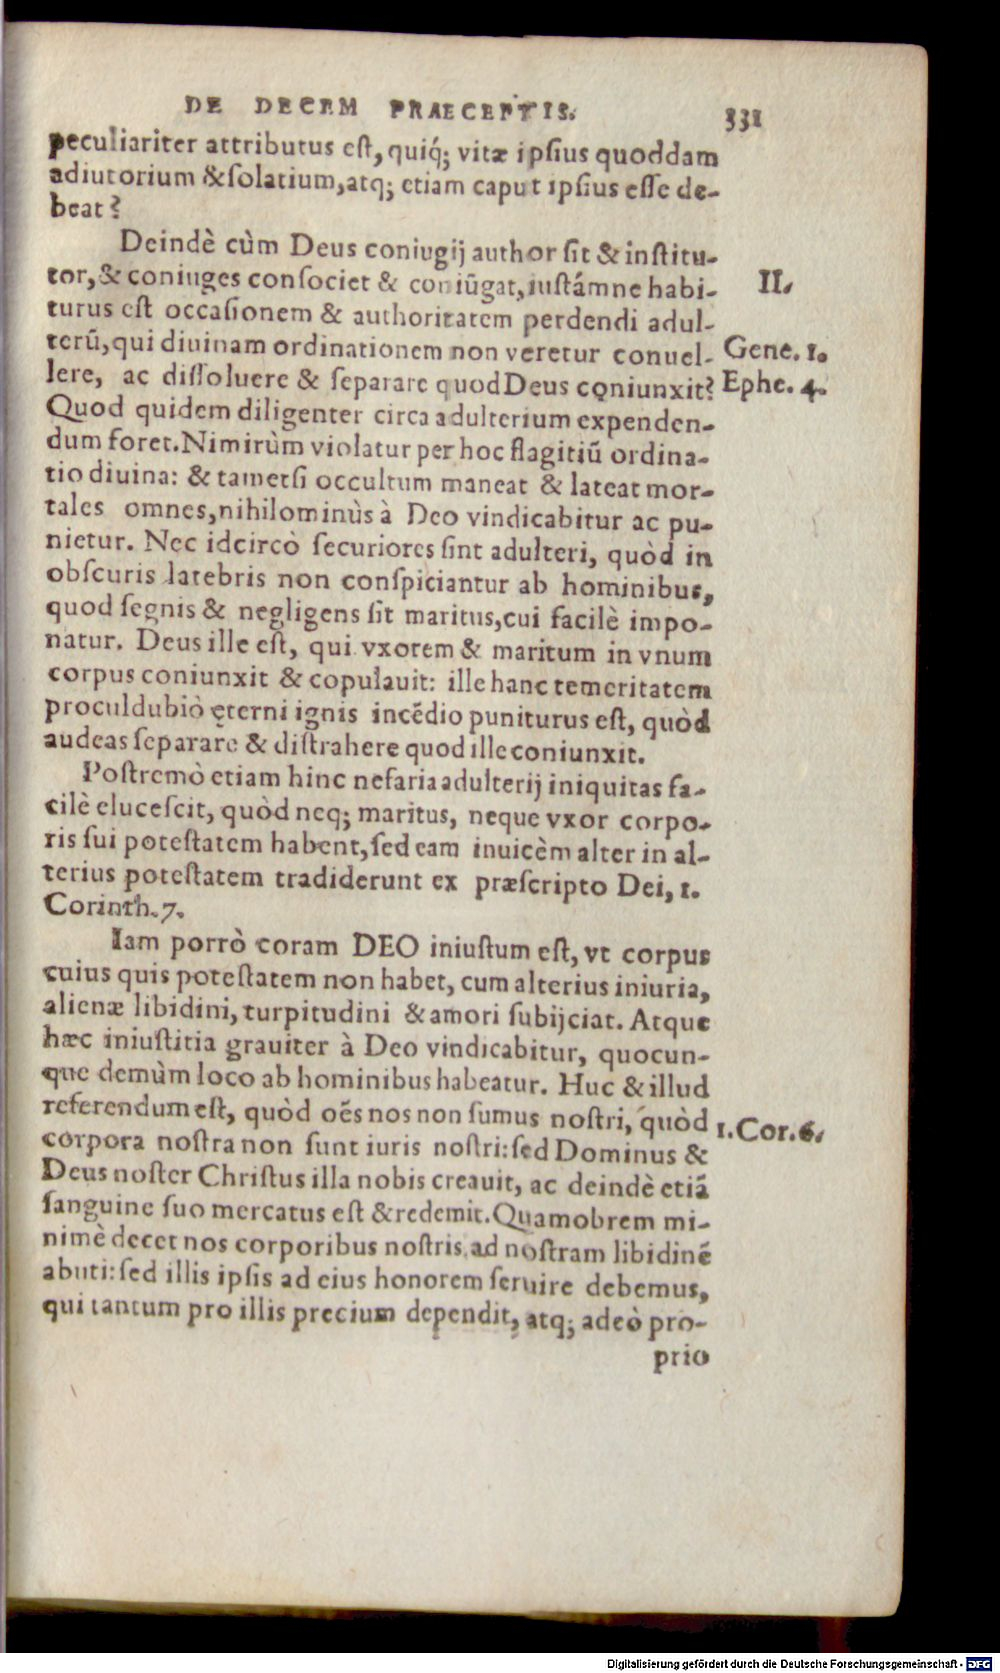 DE DECEM PRAECEPTIS. 331
peculiariter attributus est, quiq́; vitæ ipsius quoddam
adiutorium & solatium, atq; etiam caput ipsius esse de-
beat?
Deindè cùm Deus coniugij author sit & institu-
tor, & coniuges consociet & coniūgat, iustámne habi-
II.
turus est occasionem & authoritatem perdendi adul-
terũ, qui diuinam ordinationem non veretur conuel-
Gene. 1.
lere, ac dissoluere & separare quod Deus coniunxit?
Ephe. 4.
Quod quidem diligenter circa adulterium expenden-
dum foret. Nimirùm violatur per hoc flagitiũ ordina-
tio diuina: & tametsi occultum maneat & lateat mor-
tales omnes, nihilominùs à Deo vindicabitur ac pu-
nietur. Nec idcircò securiores sint adulteri, quòd in
obscuris latebris non conspiciantur ab hominibus,
quod segnis & negligens sit maritus, cui facilè impo-
natur. Deus ille est, qui vxorem & maritum in vnum
corpus coniunxit & copulauit: ille hanc temeritatem
proculdubiò ęterni ignis incēdio puniturus est, quòd
audeas separare & distrahere quod ille coniunxit.
Postremò etiam hinc nefaria adulterij iniquitas fa-
cilè elucescit, quòd neq; maritus, neque vxor corpo-
ris sui potestatem habent, sed eam inuicèm alter in al-
terius potestatem tradiderunt ex præscripto Dei, 1.
Corinth. 7.
Iam porrò coram DEO iniustum est, vt corpus
cuius quis potestatem non habet, cum alterius iniuria,
alienæ libidini, turpitudini & amori subijciat. Atque
hæc iniustitia grauiter à Deo vindicabitur, quocun-
que demùm loco ab hominibus habeatur. Huc & illud
referendum est, quòd oēs nos non sumus nostri, quòd
1. Cor. 6.
corpora nostra non sunt iuris nostri: sed Dominus &
Deus noster Christus illa nobis creauit, ac deindè etiã
sanguine suo mercatus est & redemit. Quamobrem mi-
nimè decet nos corporibus nostris ad nostram libidinē
abuti: sed illis ipsis ad eius honorem seruire debemus,
qui tantum pro illis precium dependit, atq; adeò pro-
prio
Digitalisierung gefördert durch die Deutsche Forschungsgemeinschaft - DFG